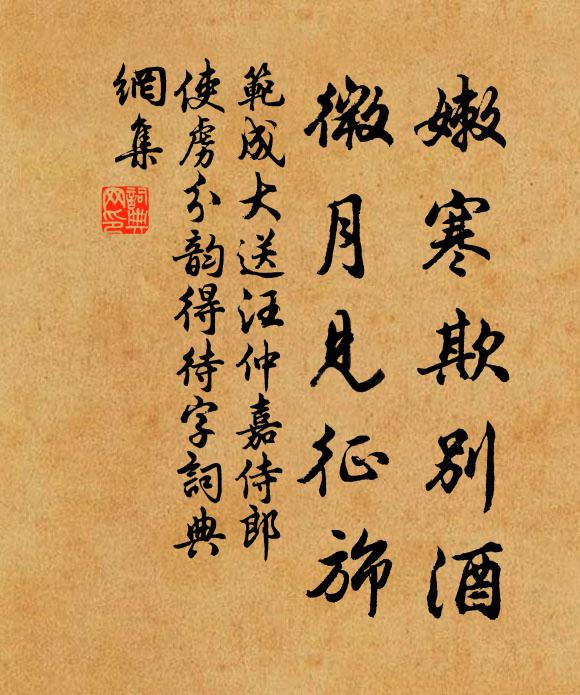 嫩寒欺別酒
微月見征旆
範成大送汪仲嘉侍郎
使虜分韵得待字詞典
網集
詞典
网印